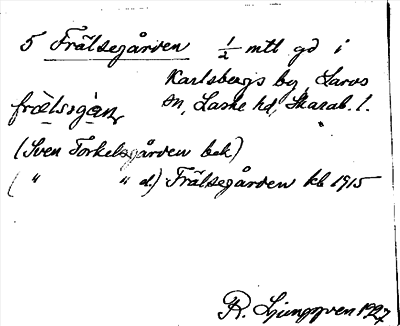 5 Frälsegården 1/2 mtl gd i
Karlsbergs by, Larvs
sn, Laske hd, Skarab. l.
frälsigàṇ
(Sven Torkelsgården bek)
( " " d.) Frälsegården kb 1915
R. Ljunggren 1927